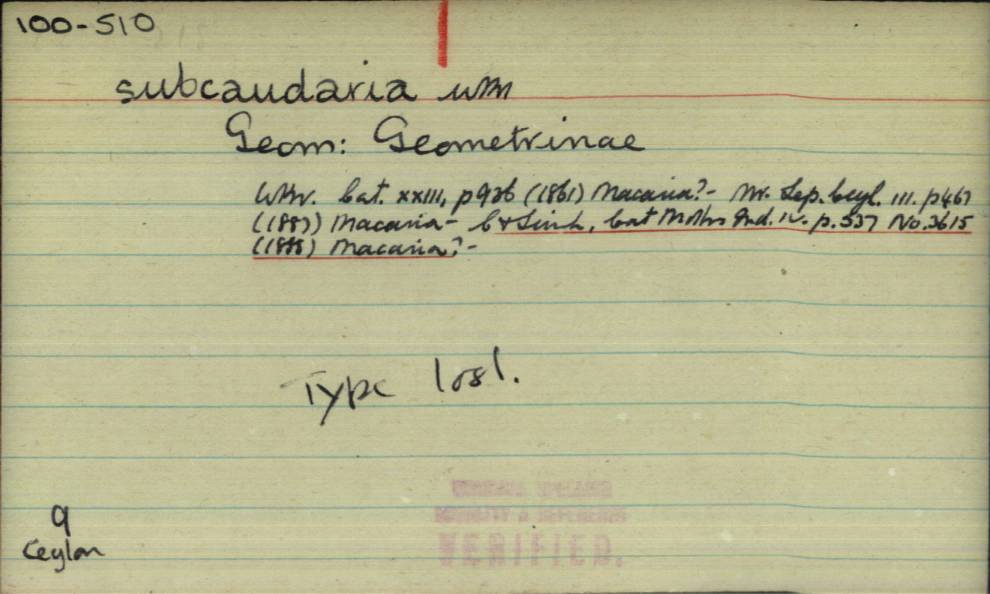 100-510
subcaudaria wkr
Geom: Geometrinae
Wkr. Cat. xxiii, p 926 (1861) Macaria? - Mr. Lep. Ceyl. iii. p 467
(1887) Macaria - C & Swinh, Cat Moths Ind. iv. p. 537 No. 3615
(1888) Macaria? -
Type lost.
Ceylon
VERIFIED.